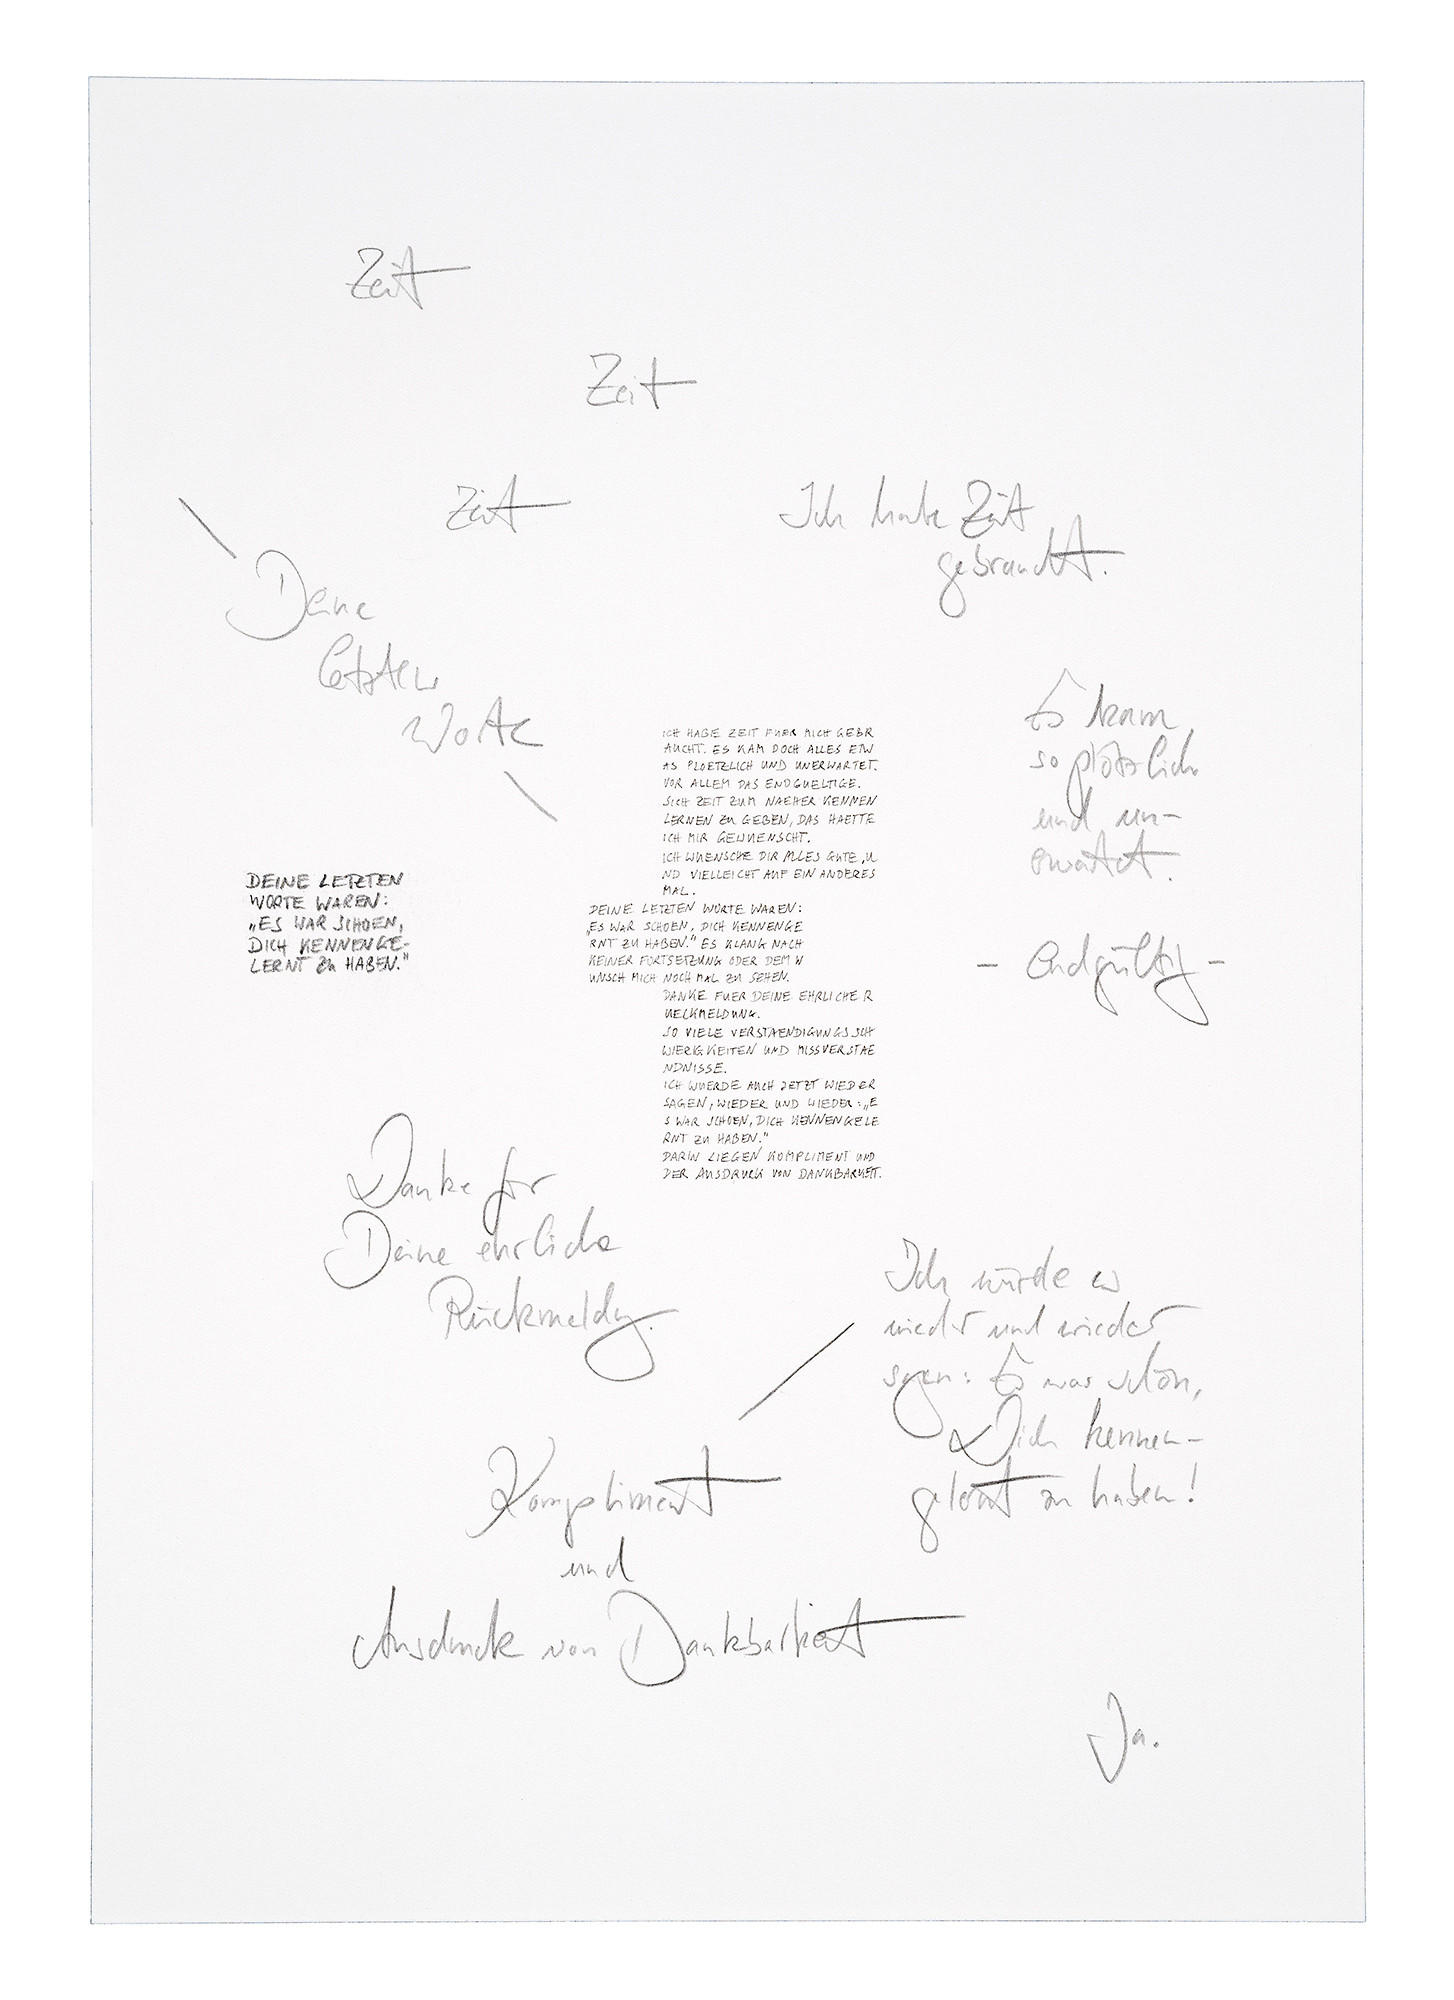 Zeit
Zeit
Zeit
Ich habe Zeit
gebraucht.
Deine
letzten
Worte
Es kam
so plötzlich
und un-
erwartet.
- endgültig -
ICH HABE ZEIT FUER MICH GEBR
AUCHT. ES KAM DOCH ALLES ETW
AS PLOETZLICH UND UNERWARTET.
VOR ALLEM DAS ENDGUELTIGE.
SICH ZEIT ZUM NAEHER KENNEN
LERNEN ZU GEBEN, DAS HAETTE
ICH MIR GEWUENSCHT.
ICH WUENSCHE DIR ALLES GUTE, U
ND VIELLEICHT AUF EIN ANDERES
MAL.
DEINE LETZTEN WORTE WAREN:
„ES WAR SCHOEN, DICH KENNENGE
RNT ZU HABEN.“ ES KLANG NACH
KEINER FORTSETZUNG ODER DEM W
UNSCH MICH NOCH MAL ZU SEHEN.
DANKE FUER DEINE EHRLICHE R
UECKMELDUNG.
SO VIELE VERSTAENDIGUNGSSCH
WIERIGKEITEN UND MISSVERSTAE
NDNISSE.
ICH WUERDE AUCH JETZT WIEDER
SAGEN, WIEDER UND WIEDER: „E
S WAR SCHOEN, DICH KENNENGELE
RNT ZU HABEN.“
DARIN LIEGEN KOMPLIMENT UND
DER AUSDRUCK VON DANKBARKEIT.
DEINE LETZTEN
WORTE WAREN:
„ES WAR SCHOEN,
DICH KENNENGE-
LERNT ZU HABEN.“
Danke für
Deine ehrliche
Rückmeldg.
Ich würde es
wieder und wieder
sagen: Es war schön,
Dich kennen-
gelernt zu haben!
Kompliment
und
Ausdruck von Dankbarkeit
Ja.